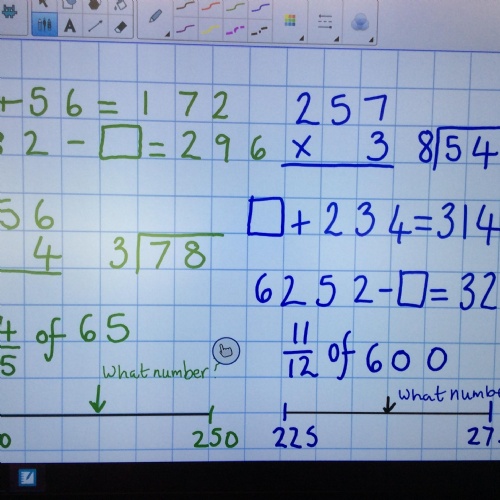 +56 = 172
2 - □ = 296
56
4
3√78
4/5 of 65
What number?
0 250
257
x 3
8√54
□ + 234 = 314
6252 - □ = 32
11/12 of 600
What numbe
225 27